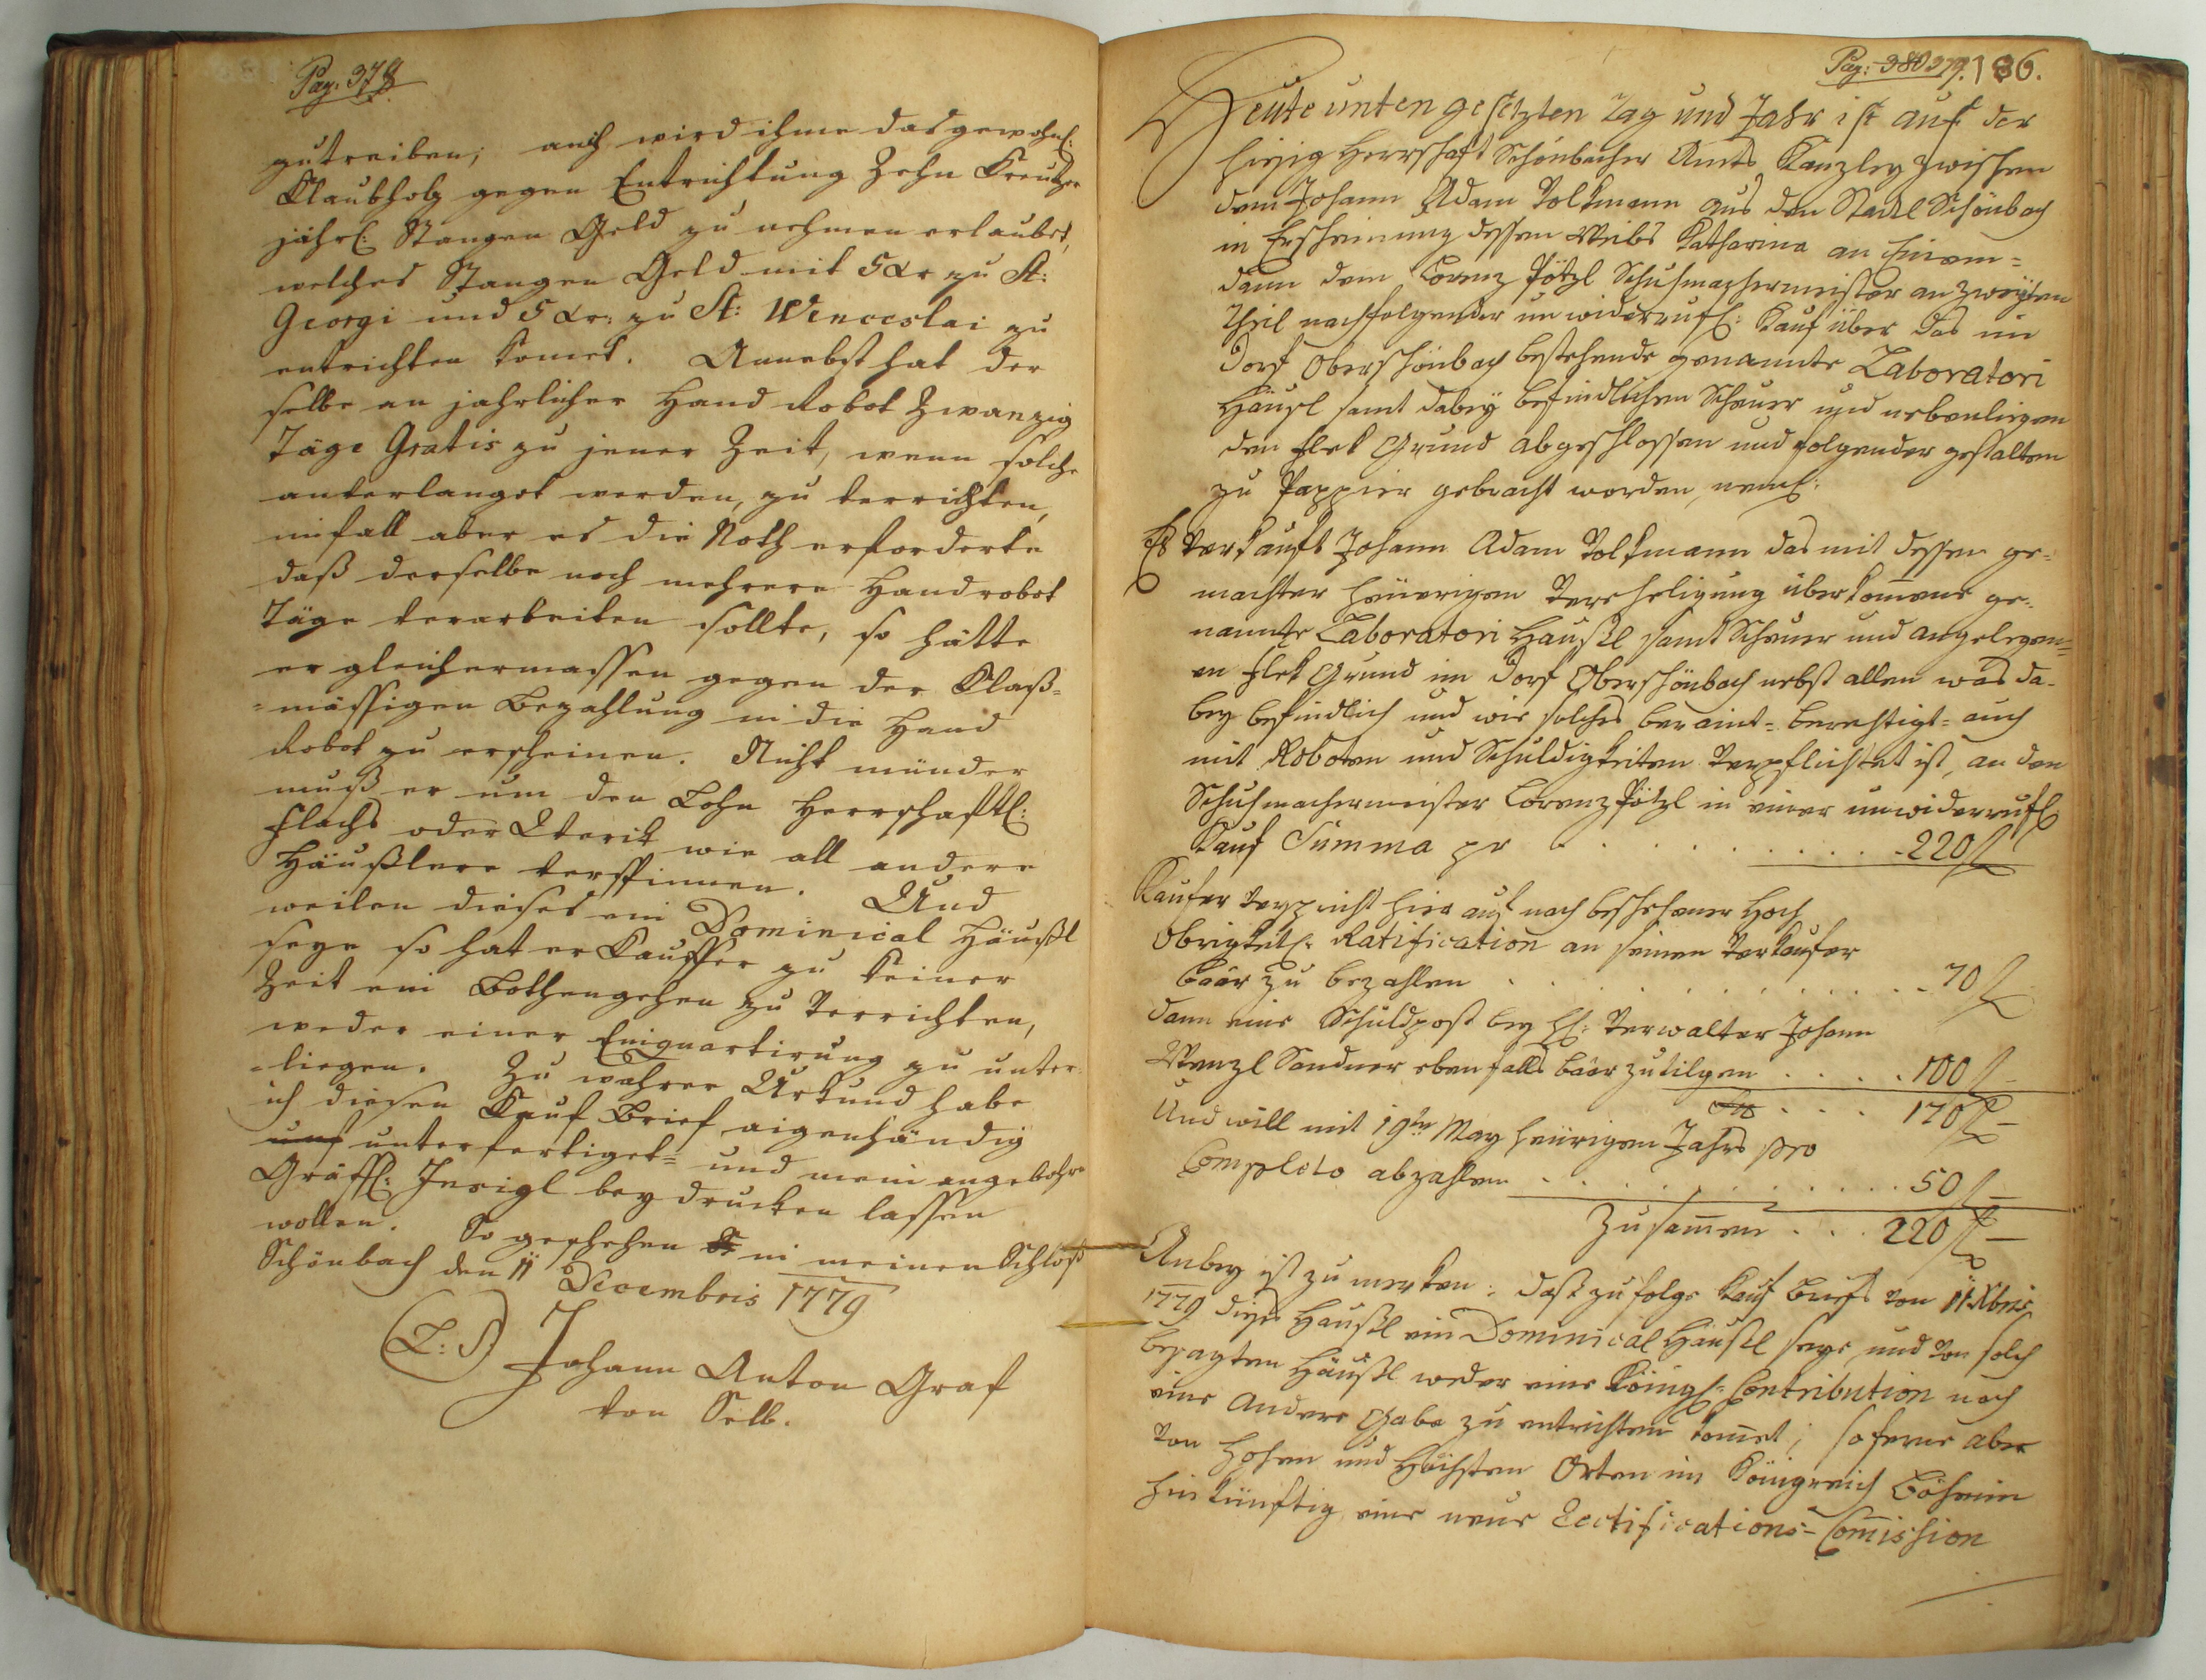 Pag: 378
zutreiben; auch wird ihme das gewohnl:
Klaubholz gegen Entrichtung Zehn Kreutzer
jährl: Stangen Geld zu nehmen erlaubet,
welches Stangen Geld mit 5 Xr zu St:
Georgi und 5 Xr: zu St: Wenceslai zu
entrichten komet. Annebst hat der
selbe an jahrlicher Hand Robot Zwanzig
Täge Gratis zu jener Zeit, wenn solche
anverlanget werden, zu verrichten,
imfall aber es die Noth erforderte
daß derselbe noch mehrere Handrobot
Täge verarbeiten sollte, so hätte
er gleichermassen gegen der Klaß-
-mässigen Bezahlung in die Hand
Robot zu erscheinen. Nicht münder
muß er um den Lohn Herrschaftl:
Flachs oder Werik wie all andere
Häußlere verspinnen. Und
weilen dieses ein Dominical Häußl
seye so hat er Kauffer zu keiner
Zeit ein Bothengehen zu Verrichten,
weder einer Einquartirung zu unter-
-liegen. Zu wahrer Urkund habe
ich diesen Kauf Brief aigenhändig
unterfertiget= und mein angebohr
Gräffl: Insigl beydrucken lassen
wollen. So geschehen in meinen Schloß
Schönbach den 11 Decembris 1779
(L: S) Johann Anton Graf
von Selb.
Pag: 380 379. 186.
Heute unten gesetzten Tag und Jahr ist auf der
hiesig Herrschaft Schönbacher Amts Kanzley zwischen
dem Johann Adam Volkmann aus den Stadtl Schönbach
in Erscheinung dessen Weibs Katharina an Einem=
dann dem Lorenz Pötzl Schuhmachermeister an zweyten
Theil nachfolgender unwiderrufl: Kauf über das im
Dorf Oberschönbach bestehende genannte Laboratori
Häusl samt dabey befindlichen Scheuer und nebenliegen
den Flek Grund abgeschlossen und folgender gestalten
zu Pappier gebracht worden, neml:
Es verkauft Johann Adam Volkmann das mit dessen ge-
machter heuerigen Vereheligung überkom̄ene ge-
nannte Laboratori Haußl samt Scheuer und angelegen=
en Flek Grund im Dorf Oberschönbach nebst allen was da-
bey befindlich und wie solches beraint= berechtigt= auch
mit Roboten und Schuldigkeiten Verpflichtet ist, an den
Schuhmachermeister Lorenz Pötzl in einer unwiderrufl
Kauf Summa pr . . . . . . 220 f
Kaufer verspricht hierauf nach beschehener Hoch
Obrigkeitl: Ratification an seinen Verkaufer
baar zu bezahlen . . . . . . 70 f
dann eine Schuldpost bey H: Verwalter Johann
Wenzl Sandner ebenfalls baar zutilgen . . . . . 100 f —
. . . 170 f —
Und will mit 19ten May heürigen Jahrs pro
Completo abzahlen . . . . . . 50 f —
Zusam̄en . . . 220 f —
Anbey ist zu merken: daß zufolge Kauf Briefs von 11 Xbris
1779 dieses Häußl ein Dominical Häußl seye, und von solch
besagten Häußl weder eine Königl: Contribution noch
eine Andere Gabe zu entrichten kom̄et; soferne aber
von Hohen und Höchsten Orten im Königreich Böheim
hinkünftig eine neue Rectifications-Com̄ission